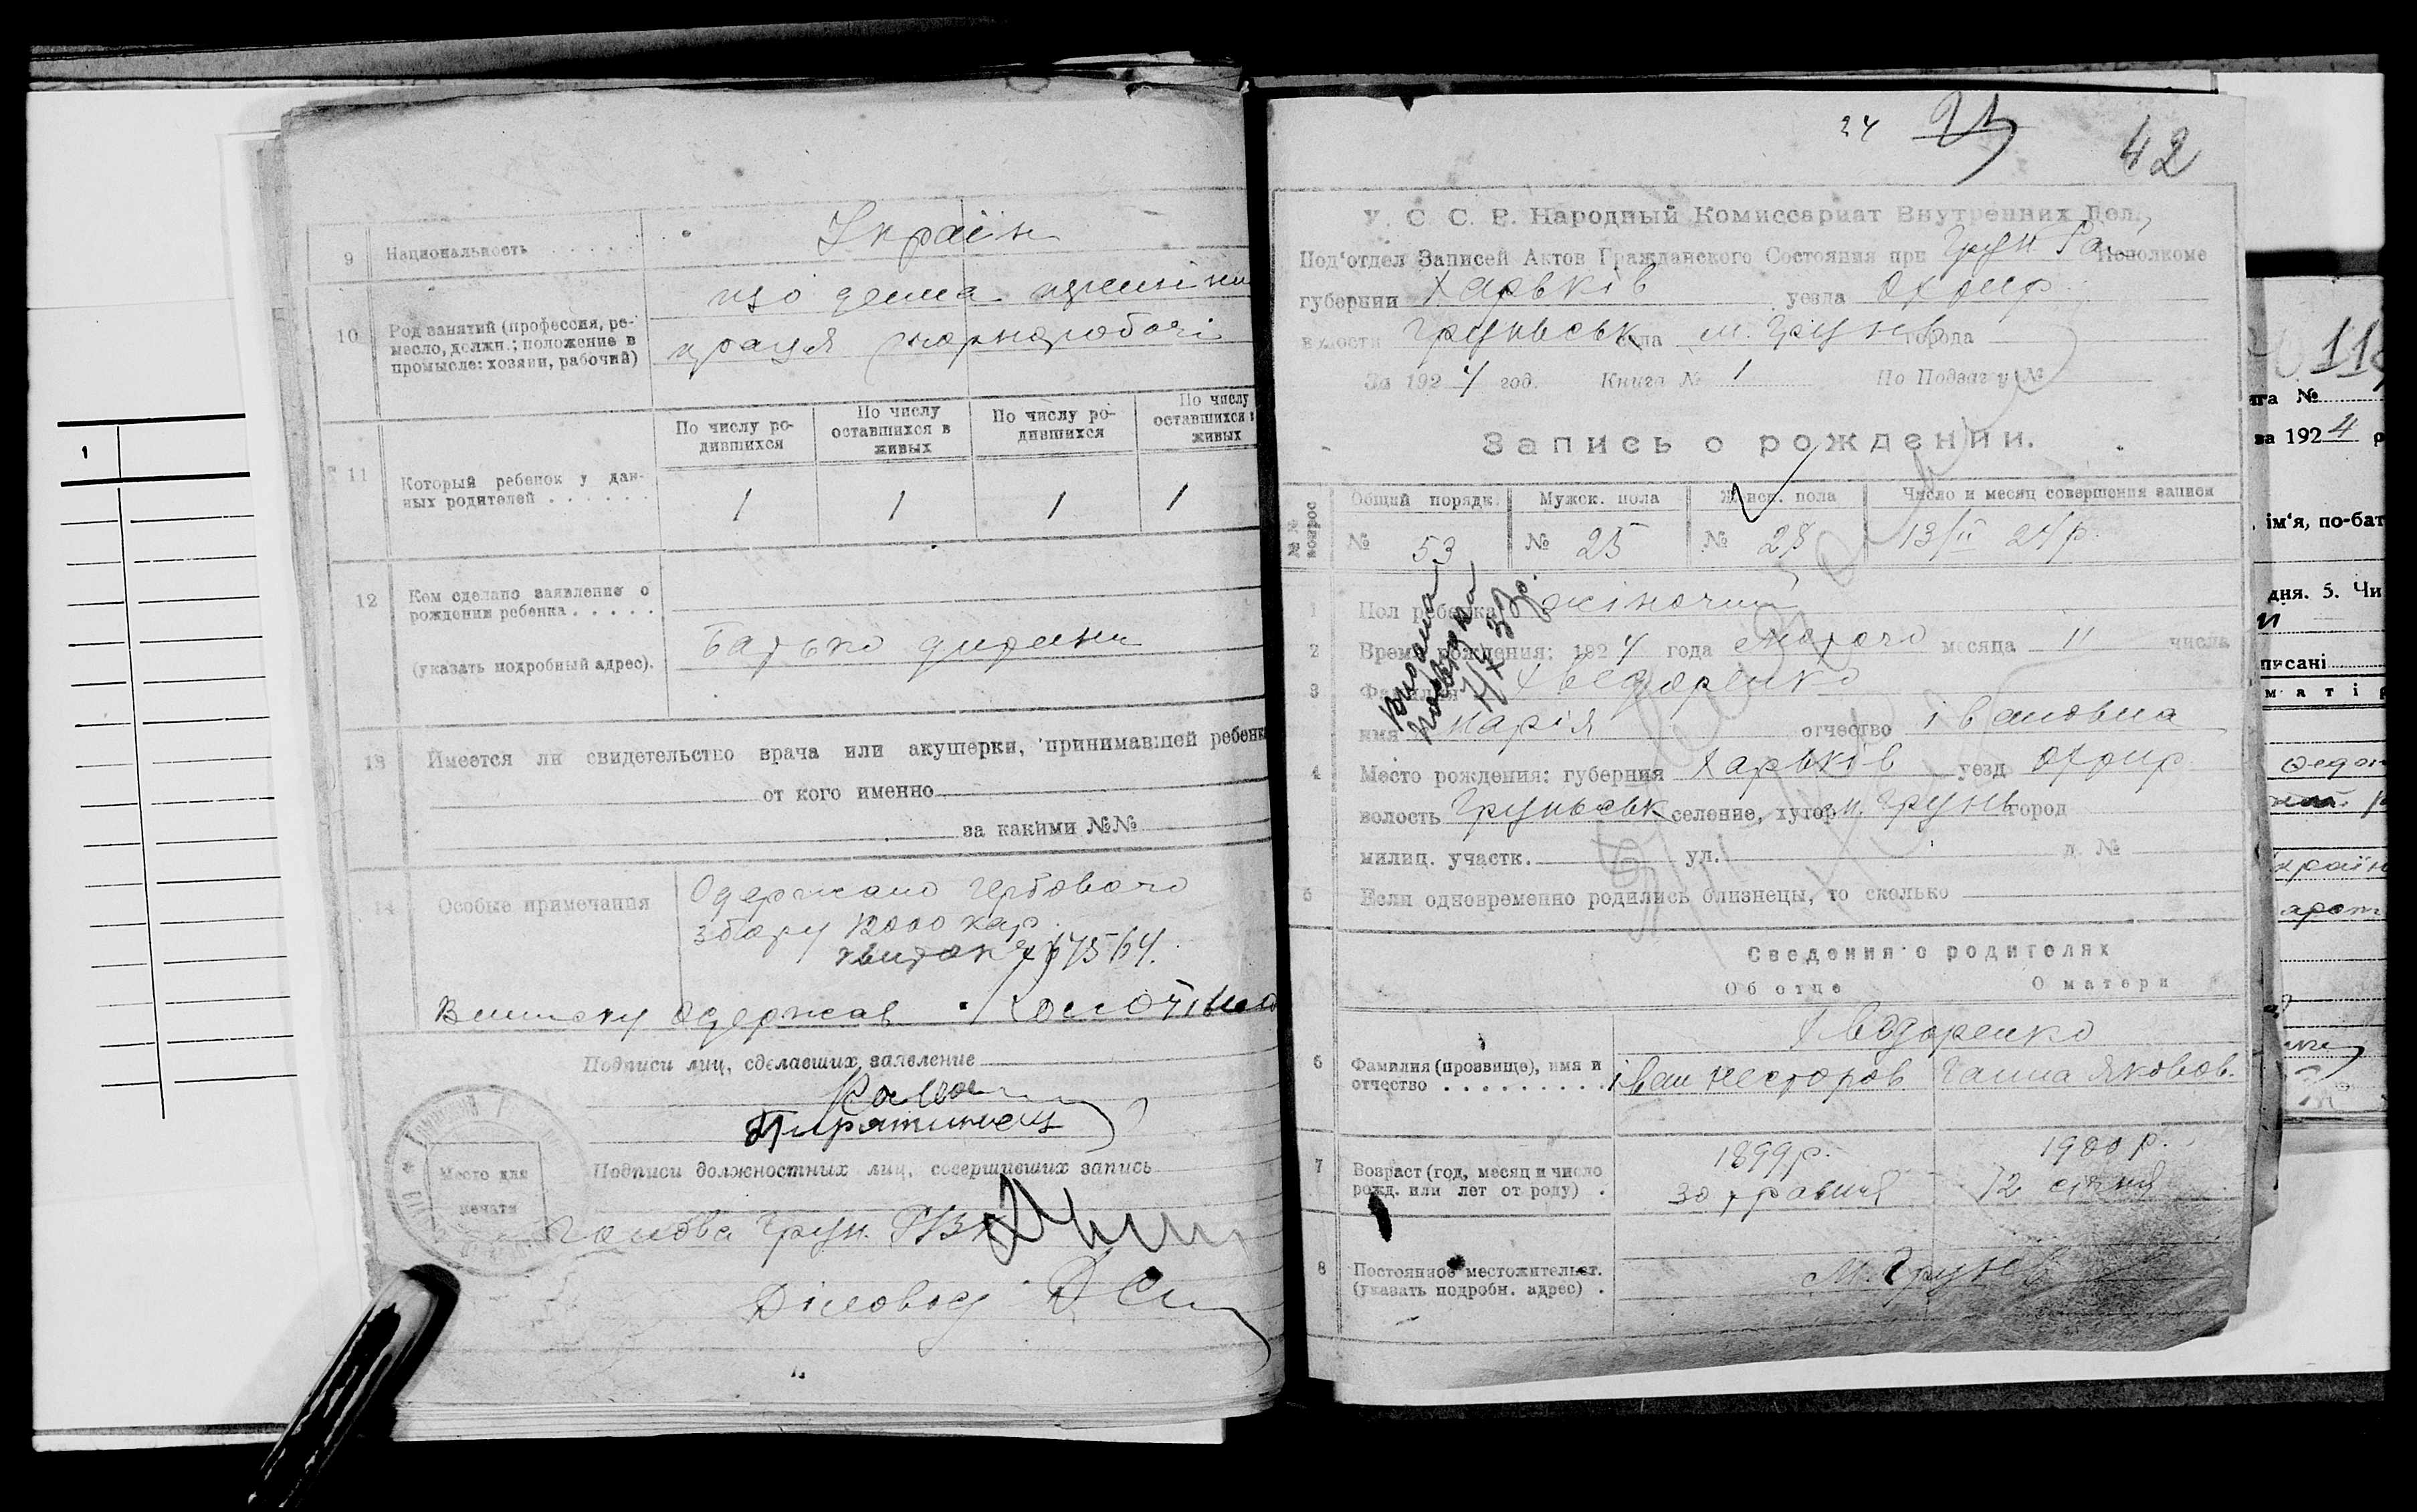 1
9 Национальность . . . . . Україн
10 Род занятий (профессия, ре-
месло, должн.; положение в
промысле: хозяин, рабочий)
праця чорноробочі
11 Который ребенок у дан-
ных родителей . . . . . .
По числу ро-
дившихся
По числу
оставшихся в
живых
По числу ро-
дившихся
По числу
оставшихся
живых
1 1 1 1
12 Кем сделано заявление о
рождении ребенка . . . . .
(указать подробный адрес).
Батько дитини
13 Имеется ли свидетельство врача или акушерки, принимавшей ребенка
от кого именно
за какими №№
14 Особые примечания
Одержано гербового
збору 12000 кар.
квиток
Виписку одержав
Подписи лиц, сделавших заявление
Подписи должностных лиц, совершивших запись
Место для
печати
Голова Грун. РВК
Діловод
24 42
У. С. С. Р. Народный Комиссариат Внутренних Дел.
Под'отдел Записей Актов Гражданского Состояния при Грун Рай Исполкоме
губернии Харьків уезда Охтир
волости Груньськ села м. Грунь города
За 1924 год. Книга № 1 По Подваг у №
Запись о рождении.
№№ вопрос
Общий порядк. Мужск. пола Женск. пола Число и месяц совершения записи
№ 53 № 25 № 28 13/II 24 р.
1 Пол ребенка жіночий
2 Время рождения: 1924 года лютого месяца 11 числа
3 Фамилия Хведоренко
имя Марія отчество івановна
4 Место рождения: губерния Харьків уезд Охтир
волость Груньськ селение, хутор м. Грунь город
милиц. участк. ул. д. №
5 Если одновременно родились близнецы, то сколько
Сведения о родителях
Об отце О матери
Хведоренко
6 Фамилия (прозвище), имя и
отчество . . . . . . . . .
іван Несторов Ганна Яковов.
7 Возраст (год, месяц и число
рожд. или лет от роду) .
1899р. 1900 р.
30 травня 12 січня
8 Постоянное местожительст.
(указать подробн. адрес) .
м. Грунь
№
за 1924 р
ім'я, по-бат
дня. 5. Чи
писані
маті